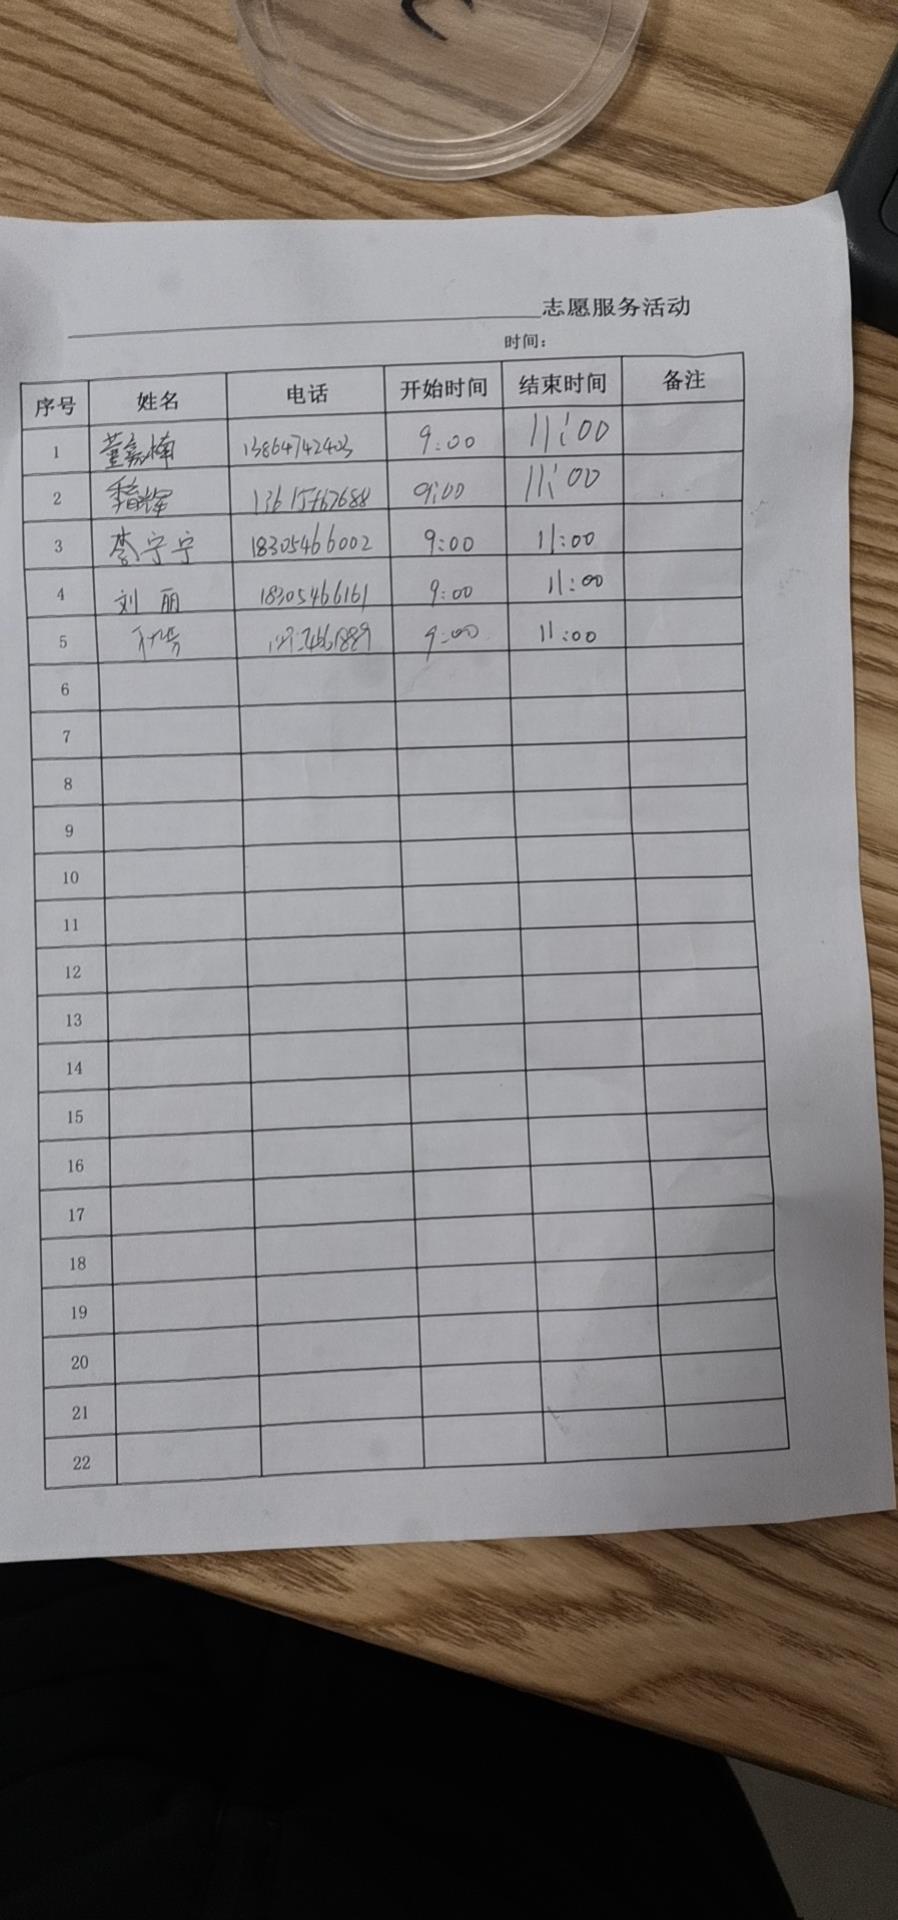 志愿服务活动
时间：
序号 姓名 电话 开始时间 结束时间 备注
1 董嘉楠 13864742403 9:00 11:00
2 9:00 11:00
3 李宁宁 18305466002 9:00 11:00
4 刘丽 18305466161 9:00 11:00
5 9:00 11:00
6
7
8
9
10
11
12
13
14
15
16
17
18
19
20
21
22